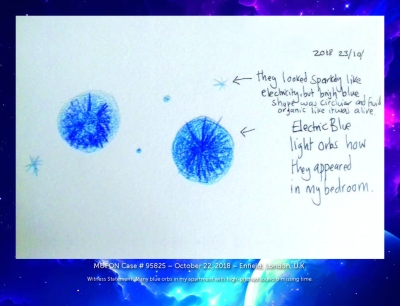 2018 23/10/
they looked sparkly like
electricity, but bright blue
shape was circular and fluid
organic like it was alive
Electric Blue
light orbs how
they appeared
in my bedroom.
MUFON Case # 95825 – October 22, 2018 – Enfield, London, U.K
Witness Statement: Many blue orbs in my apartment with high-pitched sound missing time.